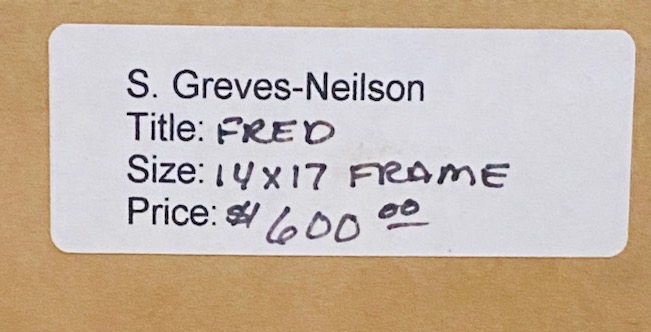 S. Greves-Neilson
Title: FRED
Size: 14x17 FRAME
Price: $600 00